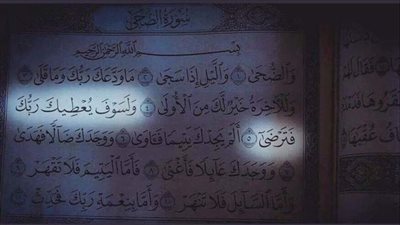 سُورَةُ الضُّحَىٰ
بِسْمِ اللَّهِ الرَّحْمَٰنِ الرَّحِيمِ
وَالضُّحَىٰ ١ وَاللَّيْلِ إِذَا سَجَىٰ ٢ مَا وَدَّعَكَ رَبُّكَ وَمَا قَلَىٰ ٣
وَلَلْآخِرَةُ خَيْرٌ لَّكَ مِنَ الْأُولَىٰ ٤ وَلَسَوْفَ يُعْطِيكَ رَبُّكَ
فَتَرْضَىٰ ٥ أَلَمْ يَجِدْكَ يَتِيمًا فَآوَىٰ ٦ وَوَجَدَكَ ضَالًّا فَهَدَىٰ
٧ وَوَجَدَكَ عَائِلًا فَأَغْنَىٰ ٨ فَأَمَّا الْيَتِيمَ فَلَا تَقْهَرْ
٩ وَأَمَّا السَّائِلَ فَلَا تَنْهَرْ ١٠ وَأَمَّا بِنِعْمَةِ رَبِّكَ فَحَدِّثْ ١١